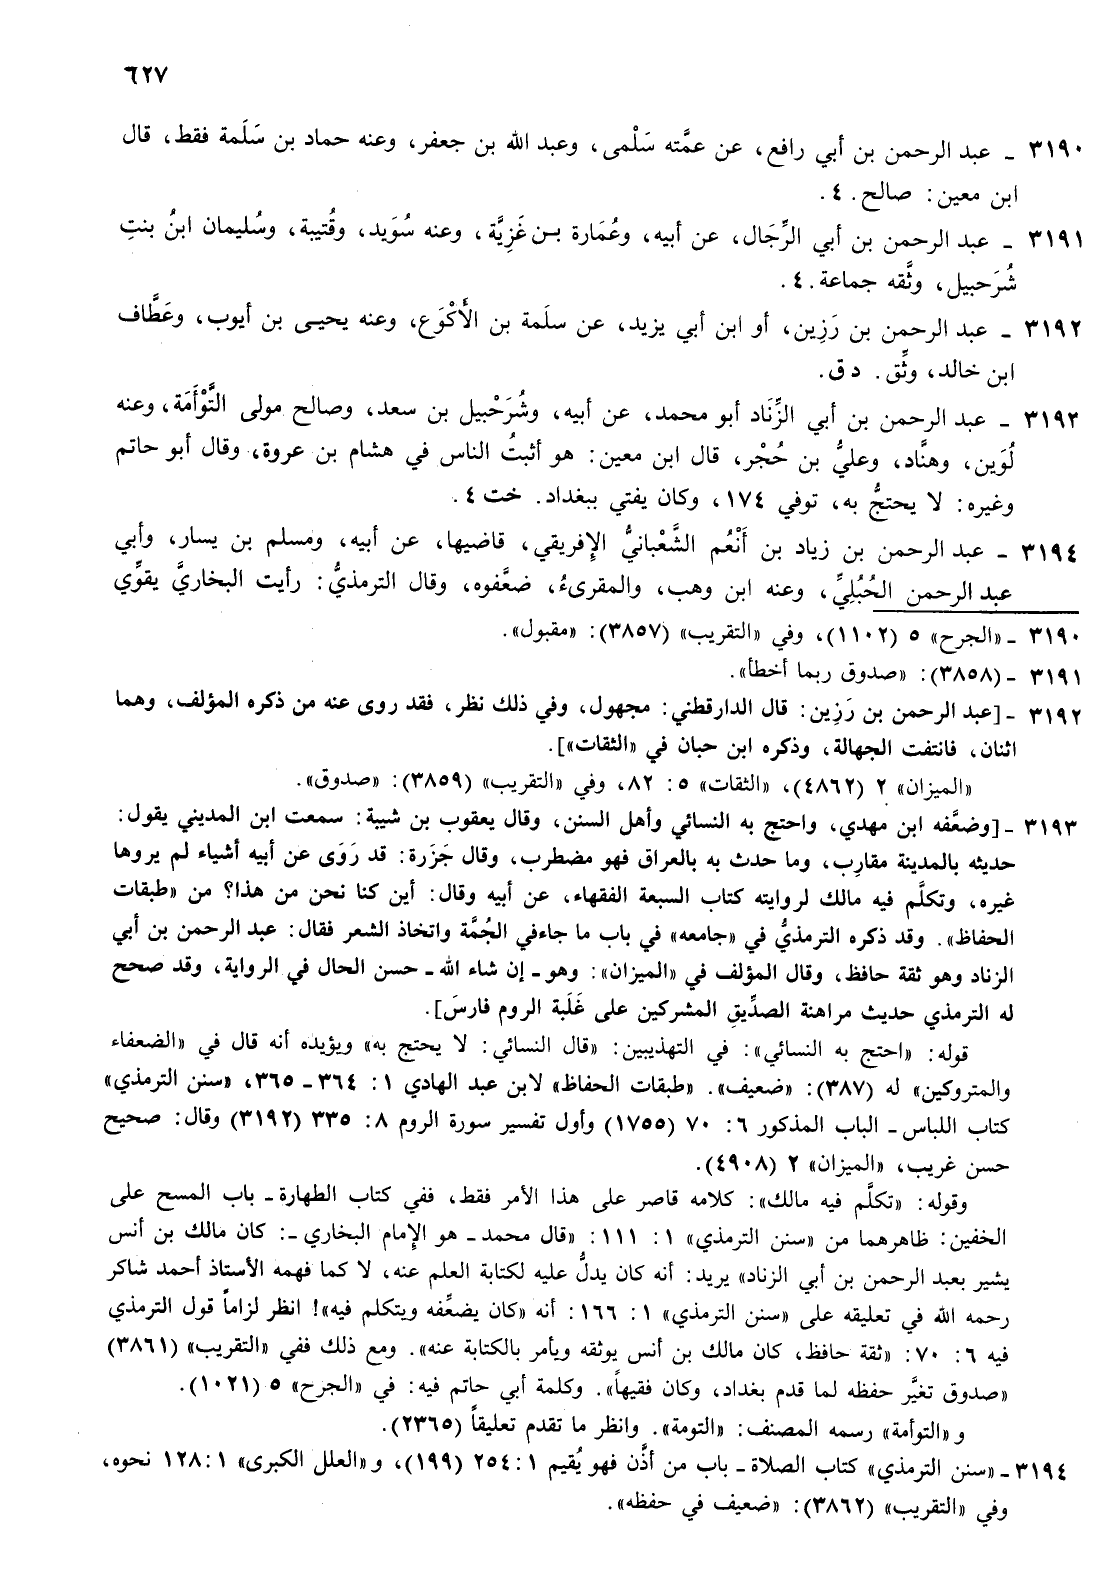 ٦٢٧
٣١٩٠ ـ عبد الرحمن بن أبي رافع، عن عمَّته سَلْمى، وعبد الله بن جعفر، وعنه حماد بن سَلَمة فقط، قال
ابن معين: صالح. ٤.
٣١٩١ ـ عبد الرحمن بن أبي الرِّجَال، عن أبيه، وعُمَارة بن غَزِيَّة، وعنه سُوَيد، وقُتيبة، وسُليمان ابنُ بنتِ
شُرَحبيل، وثَّقه جماعة. ٤.
٣١٩٢ ـ عبد الرحمن بن رَزِين، أو ابن أبي يزيد، عن سلَمة بن الأَكْوَع، وعنه يحيى بن أيوب، وعَطَّاف
ابن خالد، وثِّق. د ق.
٣١٩٣ ـ عبد الرحمن بن أبي الزِّنَاد أبو محمد، عن أبيه، وشُرَحْبيل بن سعد، وصالح مولى التَّوْأَمَة، وعنه
لُوَين، وهنَّاد، وعليُّ بن حُجْر، قال ابن معين: هو أثبتُ الناس في هشام بن عروة، وقال أبو حاتم
وغيره: لا يحتجُّ به، توفي ١٧٤، وكان يفتي ببغداد. خت ٤.
٣١٩٤ ـ عبد الرحمن بن زياد بن أَنْعُم الشَّعْبانيُّ الإفريقي، قاضيها، عن أبيه، ومسلم بن يسار، وأبي
عبد الرحمن الحُبُلِيِّ، وعنه ابن وهب، والمقرىءُ، ضعَّفوه، وقال الترمذيُّ: رأيت البخاريَّ يقوِّي
٣١٩٠ ـ «الجرح» ٥ (١١٠٢)، وفي «التقريب» (٣٨٥٧): «مقبول».
٣١٩١ ـ (٣٨٥٨): «صدوق ربما أخطأ».
٣١٩٢ ـ [عبد الرحمن بن رَزِين: قال الدارقطني: مجهول، وفي ذلك نظر، فقد روى عنه من ذكره المؤلف، وهما
اثنان، فانتفت الجهالة، وذكره ابن حبان في «الثقات»].
«الميزان» ٢ (٤٨٦٢)، «الثقات» ٥: ٨٢، وفي «التقريب» (٣٨٥٩): «صدوق».
٣١٩٣ ـ [وضعَّفه ابن مهدي، واحتج به النسائي وأهل السنن، وقال يعقوب بن شيبة: سمعت ابن المديني يقول:
حديثه بالمدينة مقارِب، وما حدث به بالعراق فهو مضطرب، وقال جَزَرة: قد رَوَى عن أبيه أشياء لم يروها
غيره، وتكلَّم فيه مالك لروايته كتاب السبعة الفقهاء، عن أبيه وقال: أين كنا نحن من هذا؟ من «طبقات
الحفاظ». وقد ذكره الترمذيُّ في «جامعه» في باب ما جاءفي الجُمَّة واتخاذ الشعر فقال: عبد الرحمن بن أبي
الزناد وهو ثقة حافظ، وقال المؤلف في «الميزان»: وهو ـ إن شاء الله ـ حسن الحال في الرواية، وقد صحح
له الترمذي حديث مراهنة الصدِّيقِ المشركين على غَلَبة الروم فارسَ].
قوله: «احتج به النسائي»: في التهذيبين: «قال النسائي: لا يحتج به» ويؤيده أنه قال في «الضعفاء
والمتروكين» له (٣٨٧): «ضعيف». «طبقات الحفاظ» لابن عبد الهادي ١: ٣٦٤ ـ ٣٦٥، «سنن الترمذي»
كتاب اللباس ـ الباب المذكور ٦: ٧٠ (١٧٥٥) وأول تفسير سورة الروم ٨: ٣٣٥ (٣١٩٢) وقال: صحيح
حسن غريب، «الميزان» ٢ (٤٩٠٨).
وقوله: «تكلَّم فيه مالك»: كلامه قاصر على هذا الأمر فقط، ففي كتاب الطهارة ـ باب المسح على
الخفين: ظاهرهما من «سنن الترمذي» ١: ١١١: «قال محمد ـ هو الإمام البخاري ـ: كان مالك بن أنس
يشير بعبد الرحمن بن أبي الزناد» يريد: أنه كان يدلُّ عليه لكتابة العلم عنه، لا كما فهمه الأستاذ أحمد شاكر
رحمه الله في تعليقه على «سنن الترمذي» ١: ١٦٦: أنه «كان يضعِّفه ويتكلم فيه»! انظر لزاماً قول الترمذي
فيه ٦: ٧٠: «ثقة حافظ، كان مالك بن أنس يوثقه ويأمر بالكتابة عنه». ومع ذلك ففي «التقريب» (٣٨٦١)
«صدوق تغيَّر حفظه لما قدم بغداد، وكان فقيهاً». وكلمة أبي حاتم فيه: في «الجرح» ٥ (١٠٢١).
و «التوأمة» رسمه المصنف: «التومة». وانظر ما تقدم تعليقاً (٢٣٦٥).
٣١٩٤ ـ «سنن الترمذي» كتاب الصلاة ـ باب من أذَّن فهو يُقيم ١: ٢٥٤ (١٩٩)، و «العلل الكبرى» ١: ١٢٨ نحوه،
وفي «التقريب» (٣٨٦٢): «ضعيف في حفظه».